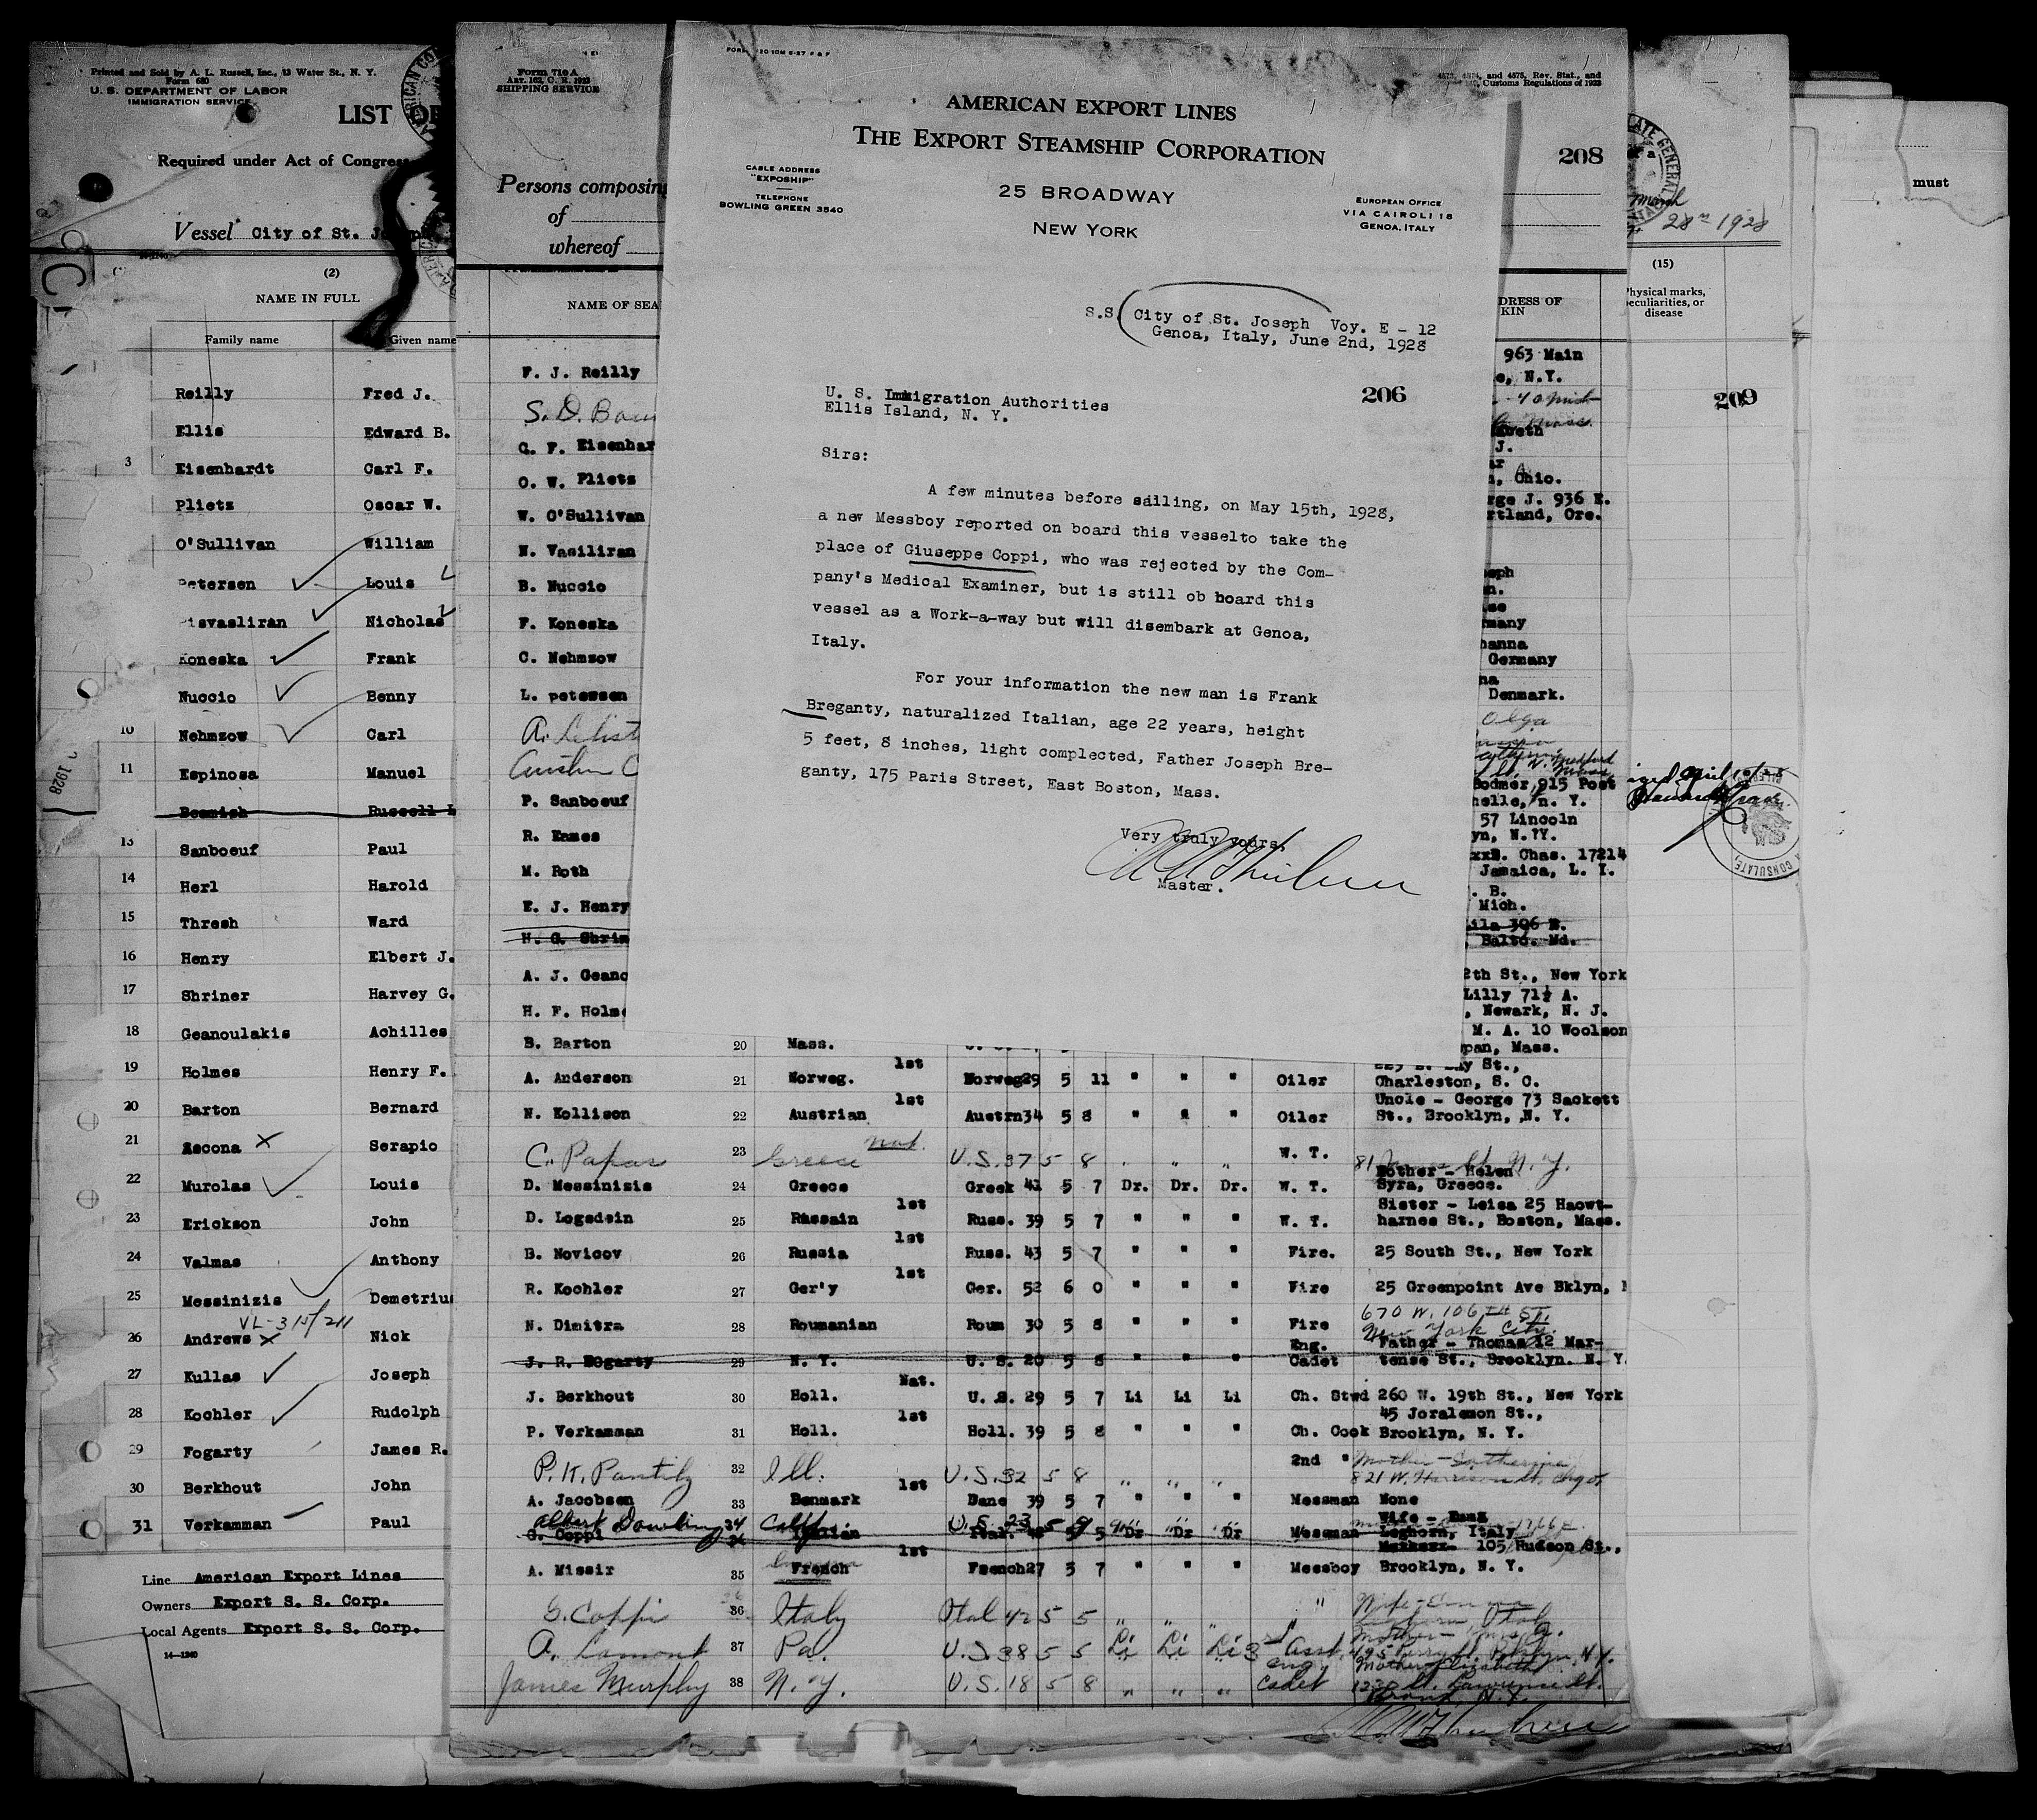 Printed and Sold by A. L. Russell, Inc., 13 Water St., N. Y.
Form 680
U. S. DEPARTMENT OF LABOR
IMMIGRATION SERVICE
LIST OF
Required under Act of Congress
Vessel City of St. Joseph
(2)
NAME IN FULL
Family name Given name
Reilly Fred J.
Ellis Edward B.
3 Eisenhardt Carl F.
Plietz Oscar W.
O'Sullivan William
Petersen Louis
isvasliran Nicholas
Koneska Frank
Nuccio Benny
10 Nehmzow Carl
11 Espinosa Manuel
Beamish Russell
13 Sanboeuf Paul
14 Herl Harold
15 Thresh Ward
16 Henry Elbert J.
17 Shriner Harvey G.
18 Geanoulakis Achilles
19 Holmes Henry F.
20 Barton Bernard
21 Ascona X Serapio
22 Murolas Louis
23 Erickson John
24 Valmas Anthony
25 Messinizis Demetrius
26 Andrews X Nick
27 Kullas Joseph
28 Kochler Rudolph
29 Fogarty James R.
30 Berkhout John
31 Verkamman Paul
Line American Export Lines
Owners Export S. S. Corp.
Local Agents Export S. S. Corp.
14—1240
1928
Form 710 A
ART. 162, C. R. 1923
SHIPPING SERVICE
4573, 4574, and 4575, Rev. Stat., and
Customs Regulations of 1923
208
Persons composing
of
whereof
NAME OF SEA
DRESS OF
KIN
F. J. Reilly
S. D. Bow
C. F. Eisenhar
O. W. Plietz
W. O'Sullivan
N. Vasiliran
B. Nuccio
F. Koneska
C. Nehmzow
L. petersen
P. Sanboeuf
R. Eames
M. Roth
E. J. Henry
H. G. Shrin
A. J. Geano
H. F. Holme
963 Main
e, N.Y.
Mass.
J.
, Ohio.
rge J. 936 E.
rtland, Ore.
seph
rmany
hanna
Germany
na
Denmark.
Olga
Bodmer 915 Post
helle, n. Y.
57 Lincoln
yn, N.?Y.
Chas. 17214
Jamaica, L. I.
. B.
Mich.
ila 306 E.
, Balto. Md.
2th St., New York
Lilly 71½ A.
, Newark, N. J.
M. A. 10 Woolson
pan, Mass.
B. Barton 20 Mass.
A. Anderson 21 Norweg. 1st Norweg29 5 11 " " " Oiler Charleston, S. C.
N. Kollison 22 Austrian 1st Austrn34 5 8 " " " Oiler Uncle - George 73 Sackett
St., Brooklyn, N. Y.
C. Papas 23 Greece Nat. U.S. 37 5 8 " " " W. T. 81 James St. N. Y.
D. Messinizis 24 Greece Greek 41 5 7 Dr. Dr. Dr. W. T. Mother - Helen
Syra, Greece.
D. Logsdein 25 Russain 1st Russ. 39 5 7 " " " W. T. Sister - Leisa 25 Haowt-
harnes St., Boston, Mass.
B. Novicov 26 Russia 1st Russ. 43 5 7 " " " Fire. 25 South St., New York
R. Kochler 27 Ger'y 1st Ger. 52 6 0 " " " Fire 25 Greenpoint Ave Bklyn,
N. Dimitra 28 Roumanian Roum 30 5 8 " " " Fire 670 W. 106TH ST.
New York City.
J. R. Fogarty 29 N. Y. U. S. 20 5 8 " " " Eng. Cadet Father - Thomas 12 Mar-
tense St., Brooklyn. N. Y.
J. Berkhout 30 Holl. Nat. U. S. 29 5 7 Li Li Li Ch. Stwd 260 W. 19th St., New York
P. Verkamman 31 Holl. 1st Holl. 39 5 8 " " " Ch. Cook 45 Joralemon St.,
Brooklyn, N. Y.
P. K. Pantily 32 Ill. U.S. 32 5 8 " " " 2nd " Mother - Catherine
821 W. Harrison St. Chgo
A. Jacobsen 33 Denmark 1st Dane 39 5 7 " " " Messman None
Albert Dowling 34 Calif. U.S. 23 5 9
G. Coppi 34 Italian Ital. 5 5 Dr Dr Dr Messman Wife - Emma
Leghorn, Italy
A. Missir 35 French 1st French27 5 7 " " " Messboy 105 Hudson St.,
Brooklyn, N. Y.
G. Coppi 36 Italy Ital 42 5 5 " " " " Wife - Emma
A. Lamont 37 Pa. U.S. 38 5 5 Li Li Li 3rd Asst. Mother - Mrs. A.
James Murphy 38 N. Y. U.S. 18 5 8 " " " Eng. Cadet Mother Elizabeth
1230 St. Lawrence St.
Bronx, N.Y.
AMERICAN EXPORT LINES
THE EXPORT STEAMSHIP CORPORATION
25 BROADWAY
NEW YORK
CABLE ADDRESS
"EXPOSHIP"
TELEPHONE
BOWLING GREEN 3540
EUROPEAN OFFICE
VIA CAIROLI 18
GENOA, ITALY
S.S. City of St. Joseph Voy. E - 12
Genoa, Italy, June 2nd, 1928
206
U. S. Immigration Authorities
Ellis Island, N. Y.
Sirs:
A few minutes before sailing, on May 15th, 1928,
a new Messboy reported on board this vesselto take the
place of Giuseppe Coppi, who was rejected by the Com-
pany's Medical Examiner, but is still ob board this
vessel as a Work-a-way but will disembark at Genoa,
Italy.
For your information the new man is Frank
Breganty, naturalized Italian, age 22 years, height
5 feet, 8 inches, light complected, Father Joseph Bre-
ganty, 175 Paris Street, East Boston, Mass.
Very truly yours,
Master.
March
28th 1928
(15)
Physical marks,
peculiarities, or
disease
209
must